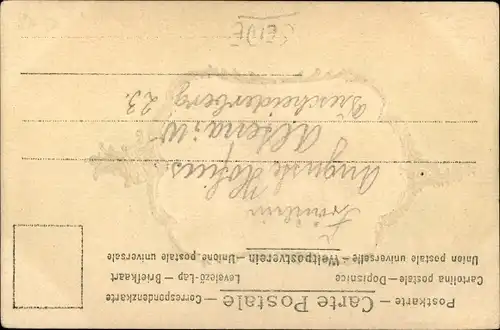 Postkarte — Carte Postale — Correspondenzkarte
Cartolina postale — Dopisnice Levelező-Lap — Briefkaart
Union postale universelle — Weltpostverein — Unione postale universale
Fräulein
Auguste
Altena i/W
23.
SEIDE